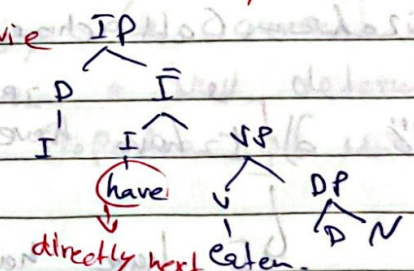 IP
D Ī
I I VP
have V DP
directly next eaten. D N